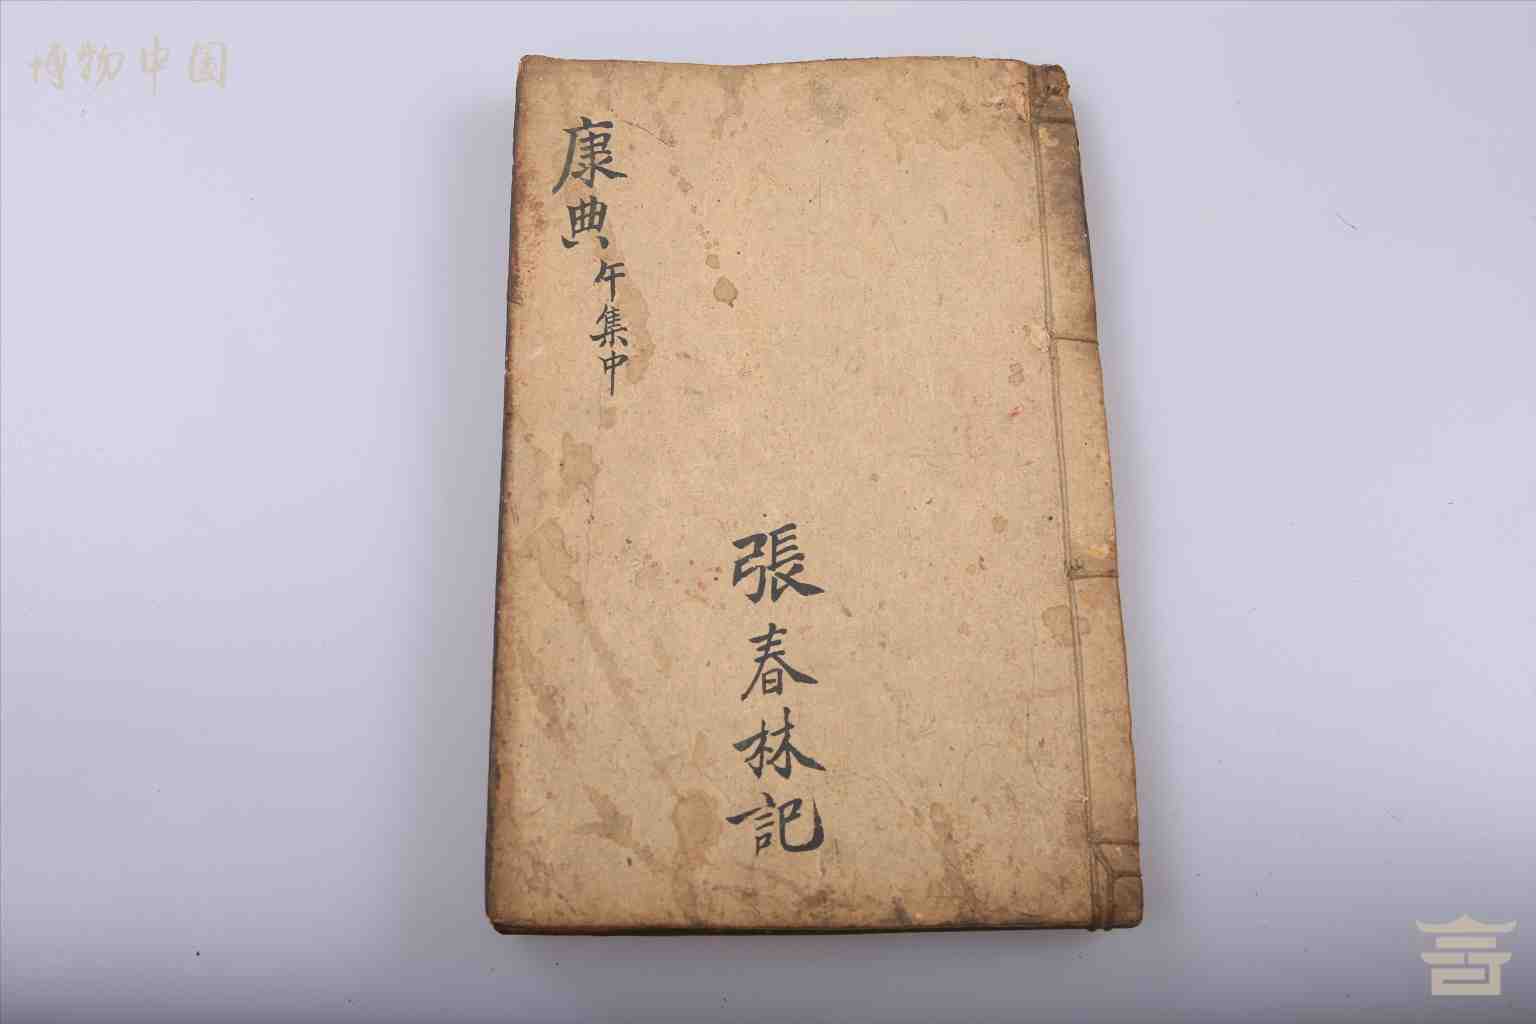 博物中国
康典
午集中
張春林記